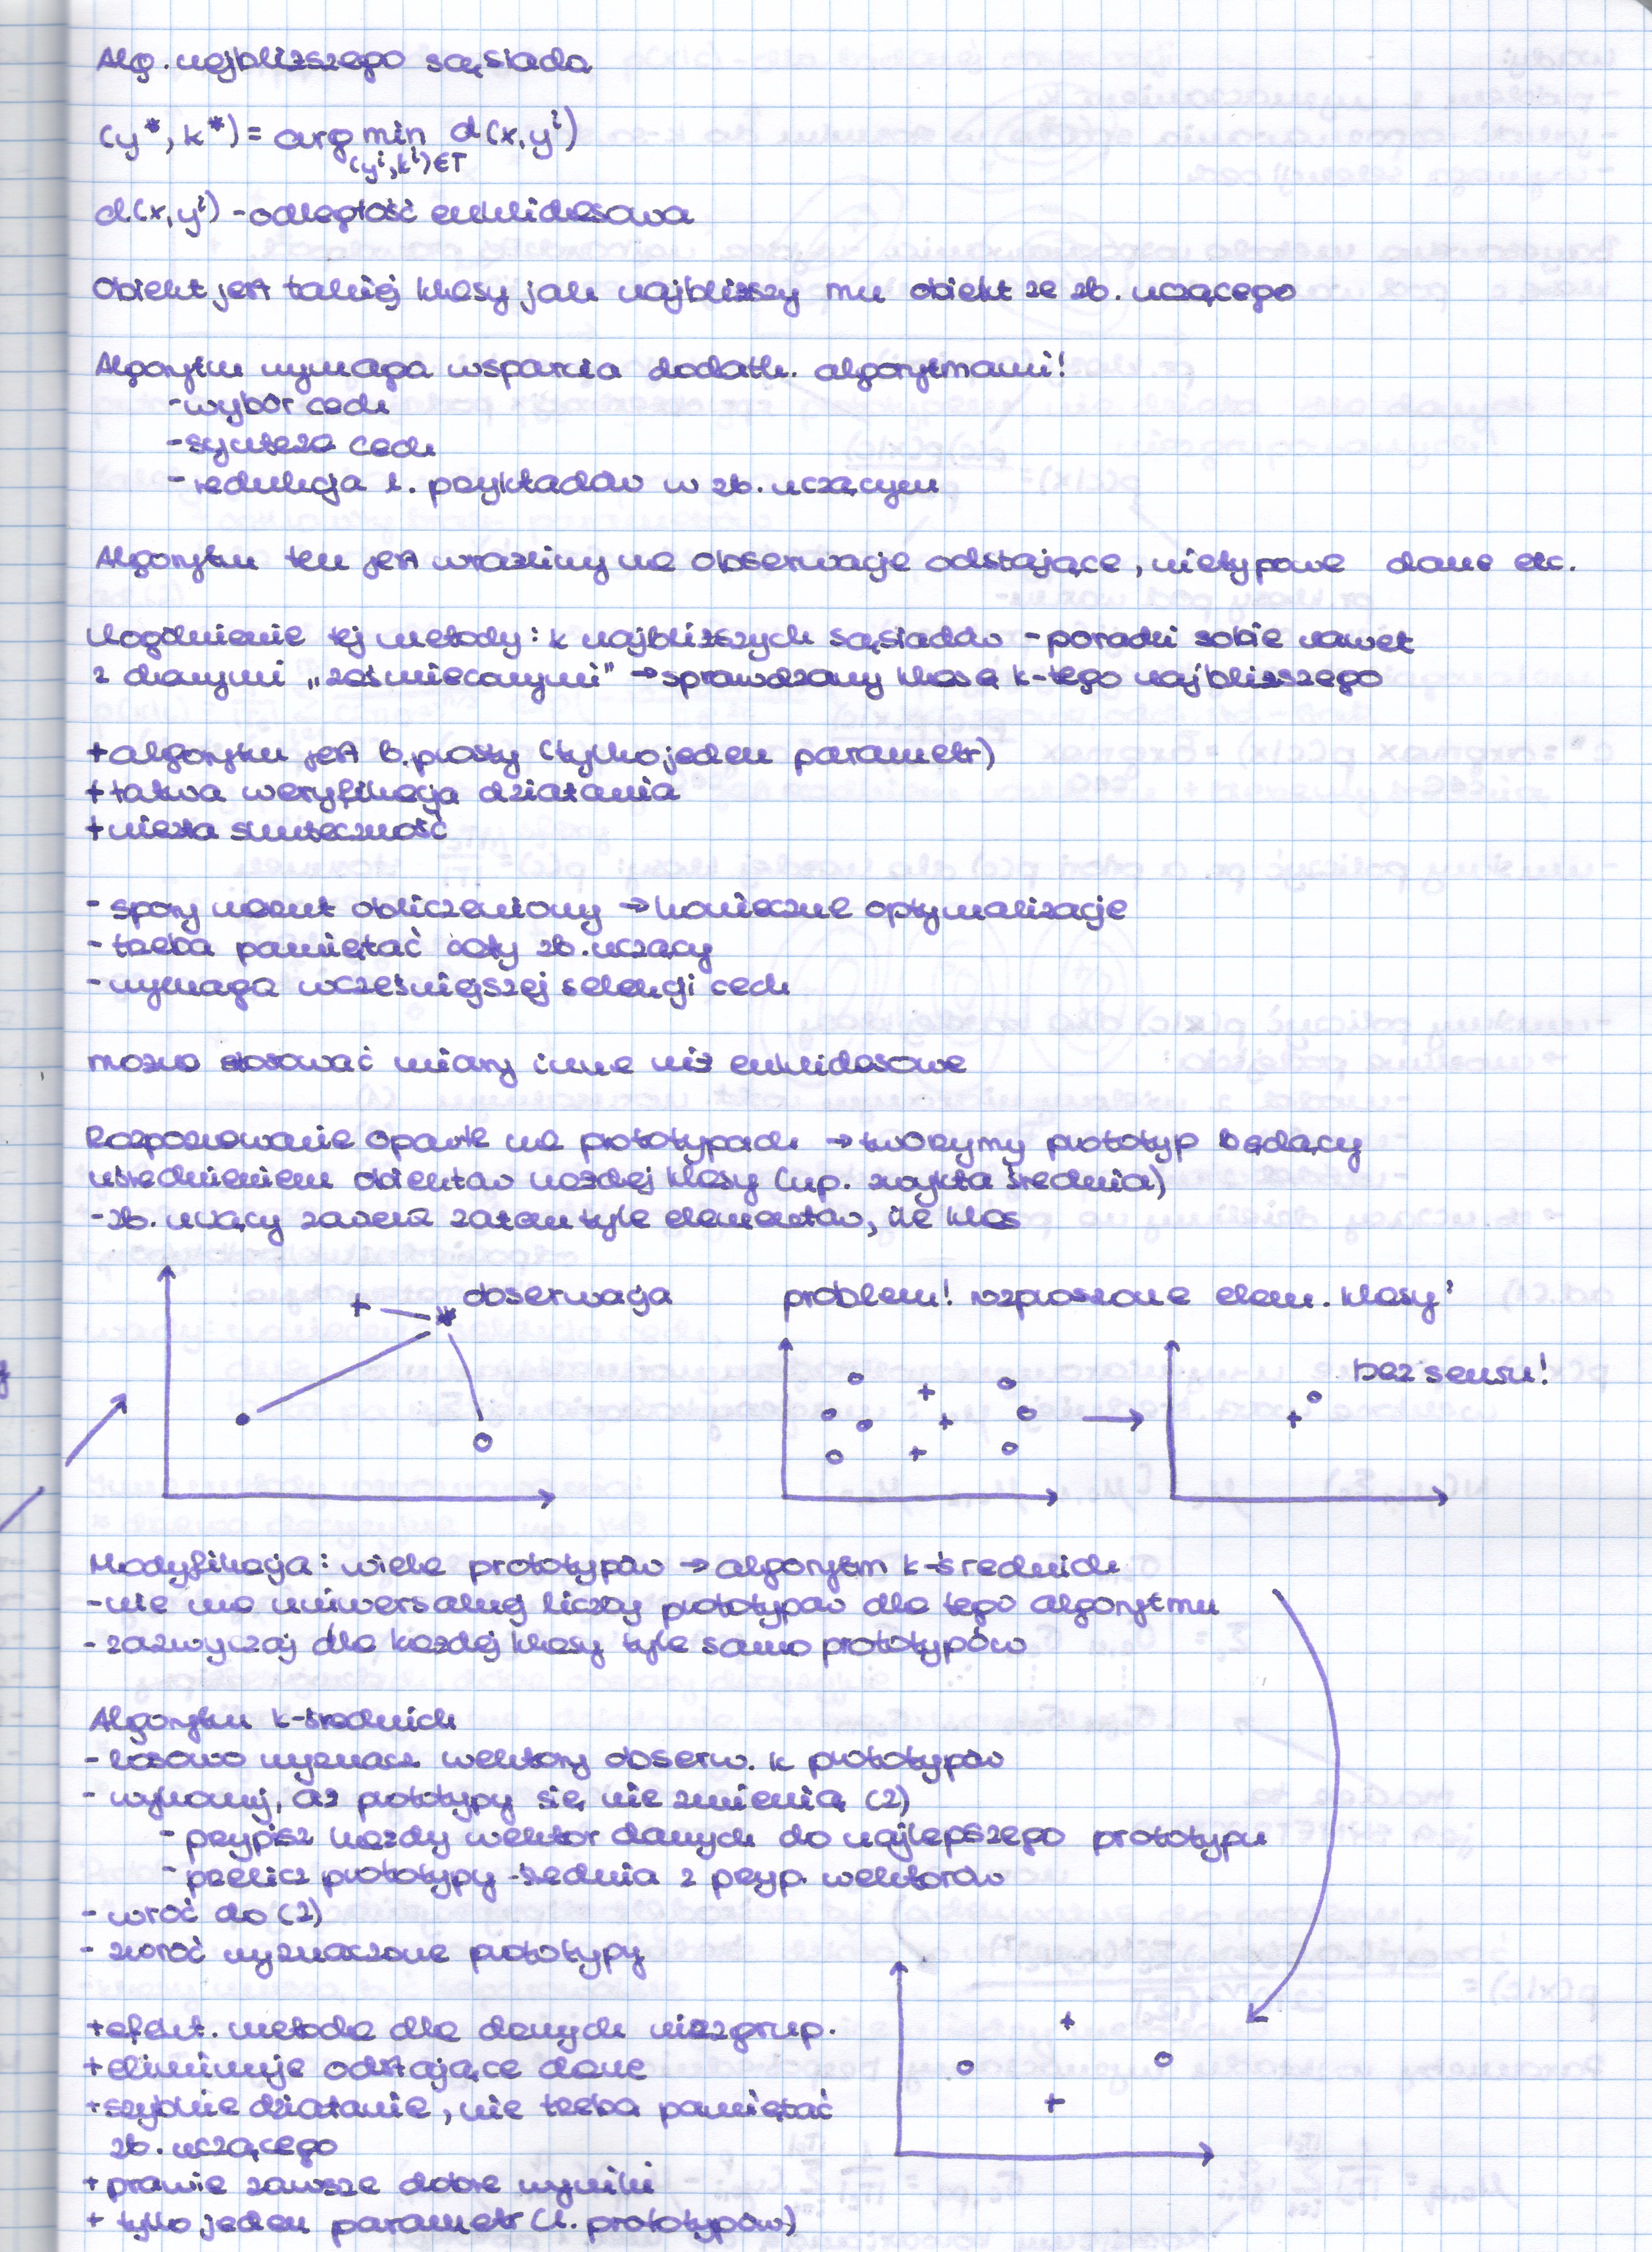 Alg. najbliższego sąsiada
(y*, k*) = arg min d(x, yⁱ)
(yⁱ, kⁱ) ∈ T
d(x, yⁱ) - odległość euklidesowa
Obiekt jest takiej klasy jak najbliższy mu obiekt ze zb. uczącego
Algorytm wymaga wsparcia dodatk. algorytmami!
- wybór cech
- synteza cech
- redukcja l. przykładów w zb. uczącym
Algorytm ten jest wrażliwy na obserwacje odstające, nietypowe dane etc.
Uogólnienie tej metody: k najbliższych sąsiadów - poradzi sobie nawet
z danymi „zaśmieconymi" → sprawdzamy klasę k-tego najbliższego
+ algorytm jest b. prosty (tylko jeden parametr)
+ łatwa weryfikacja działania
+ niezła skuteczność
- spory narzut obliczeniowy → konieczne optymalizacje
- trzeba pamiętać cały zb. uczący
- wymaga wcześniejszej selekcji cech
można stosować miary inne niż euklidesowe
Rozpoznawanie oparte na prototypach → tworzymy prototyp będący
uśrednieniem obiektów każdej klasy (np. zwykła średnia)
- zb. uczący zawiera zatem tyle elementów, ile klas
obserwacja
problem! rozproszone elem. klasy!
bez sensu!
Modyfikacja: wiele prototypów → algorytm k-średnich
- nie ma uniwersalnej liczby prototypów dla tego algorytmu
- zazwyczaj dla każdej klasy tyle samo prototypów
Algorytm k-średnich
- losowo wyznacz wektory obserw. k prototypów
- wykonuj, aż prototypy się nie zmienią (2)
- przypisz każdy wektor danych do najlepszego prototypu
- przelicz prototypy - średnia z przyp. wektorów
- wróć do (2)
- zwróć wyznaczone prototypy
+ efekt. metoda dla danych niezgrup.
+ eliminuje odstające dane
+ szybkie działanie, nie trzeba pamiętać
zb. uczącego
+ prawie zawsze dobre wyniki
+ tylko jeden parametr (l. prototypów)